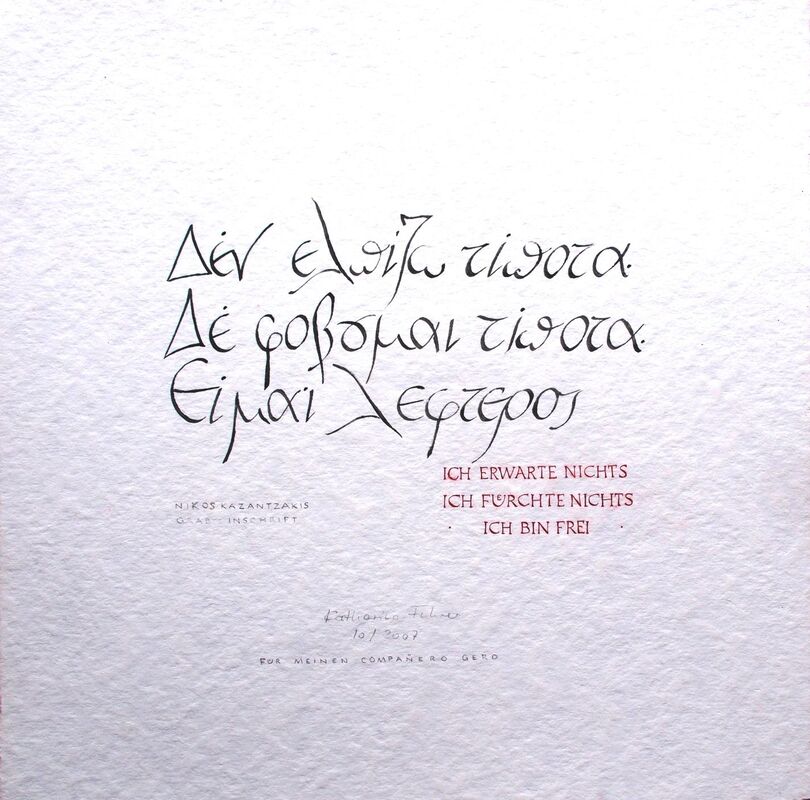 Δέν ελπίζω τίποτα.
Δέ φοβσμαι τίποτα.
Είμαι λεφτερος
ICH ERWARTE NICHTS
ICH FÜRCHTE NICHTS
· ICH BIN FREI ·
NIKOS KAZANTZAKIS
GRAB-INSCHRIFT
Katharina
10/2007
FÜR MEINEN COMPAÑERO GERO